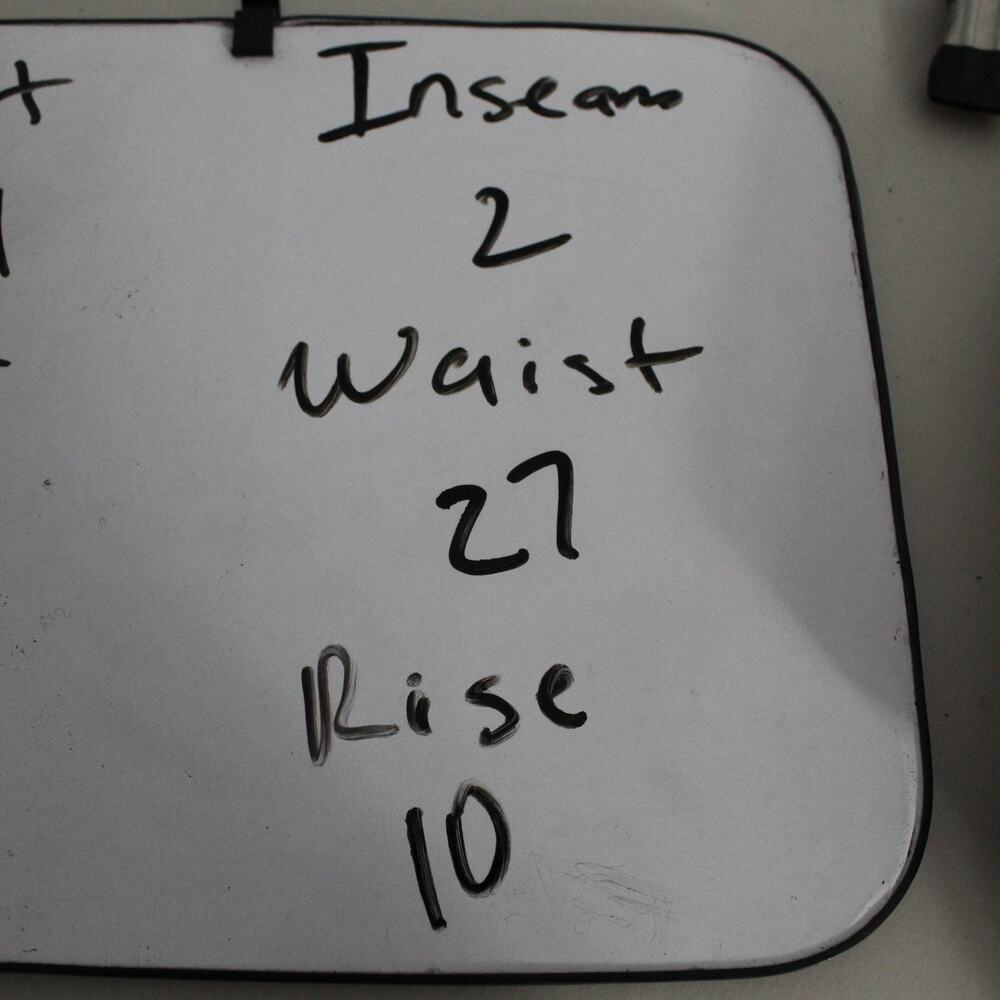 Inseam
2
Waist
27
Rise
10